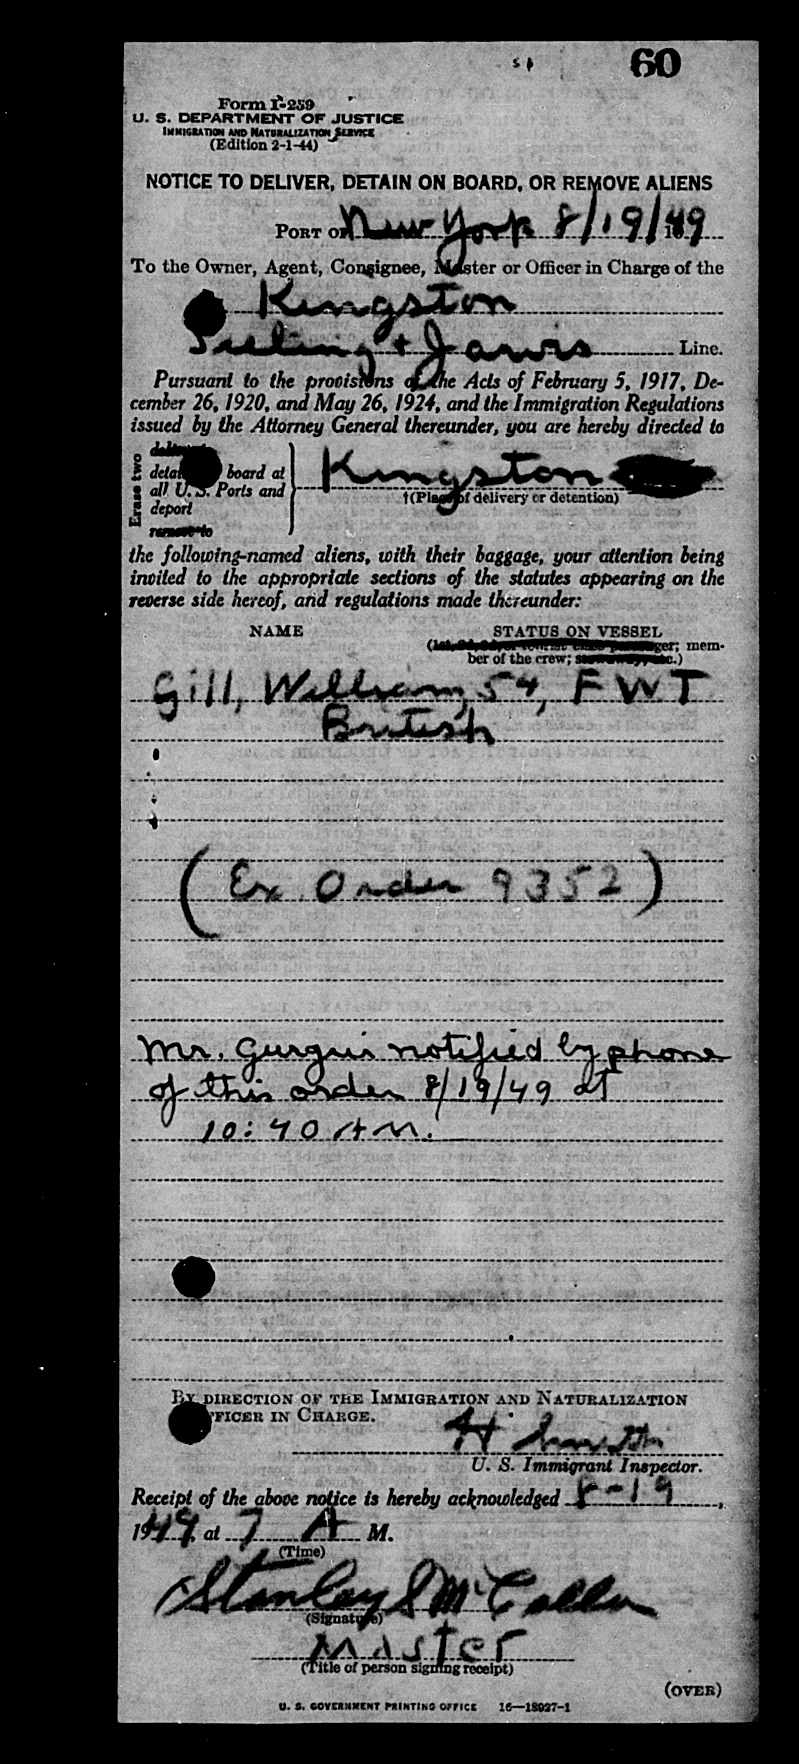 60
Form I-259
U. S. DEPARTMENT OF JUSTICE
IMMIGRATION AND NATURALIZATION SERVICE
(Edition 2-1-44)
NOTICE TO DELIVER, DETAIN ON BOARD, OR REMOVE ALIENS
PORT OF New York 8/19/49
To the Owner, Agent, Consignee, Master or Officer in Charge of the
Kingston
+ Jarvis Line.
Pursuant to the provisions of the Acts of February 5, 1917, De-
cember 26, 1920, and May 26, 1924, and the Immigration Regulations
issued by the Attorney General thereunder, you are hereby directed to
Erase two
board at
all U. S. Ports and
deport
remove to
Kingston
†(Place of delivery or detention)
the following-named aliens, with their baggage, your attention being
invited to the appropriate sections of the statutes appearing on the
reverse side hereof, and regulations made thereunder:
NAME STATUS ON VESSEL
mem-
ber of the crew;
Gill, William, 54, FWT
British
(Ex. Order 9352)
Mr. notified by phone
of this order 8/19/49 at
10:40 AM.
BY DIRECTION OF THE IMMIGRATION AND NATURALIZATION
OFFICER IN CHARGE.
H Smith
U. S. Immigrant Inspector.
Receipt of the above notice is hereby acknowledged 8-19,
1949, at 7 A M.
(Time)
Stanley S
(Signature)
MASTER
(Title of person signing receipt)
(OVER)
U. S. GOVERNMENT PRINTING OFFICE 16—18027-1